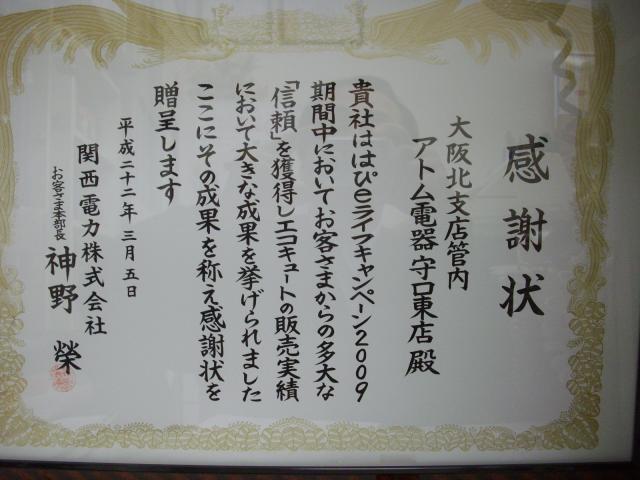 感謝状
大阪北支店管内
アトム電器守口東店 殿
貴社ははぴeライフキャンペーン2009
期間中においてお客さまからの多大な
「信頼」を獲得しエコキュートの販売実績
において大きな成果を挙げられました
ここにその成果を称え感謝状を
贈呈します
平成二十二年 三月 五日
関西電力株式会社
お客さま本部長 神野 榮